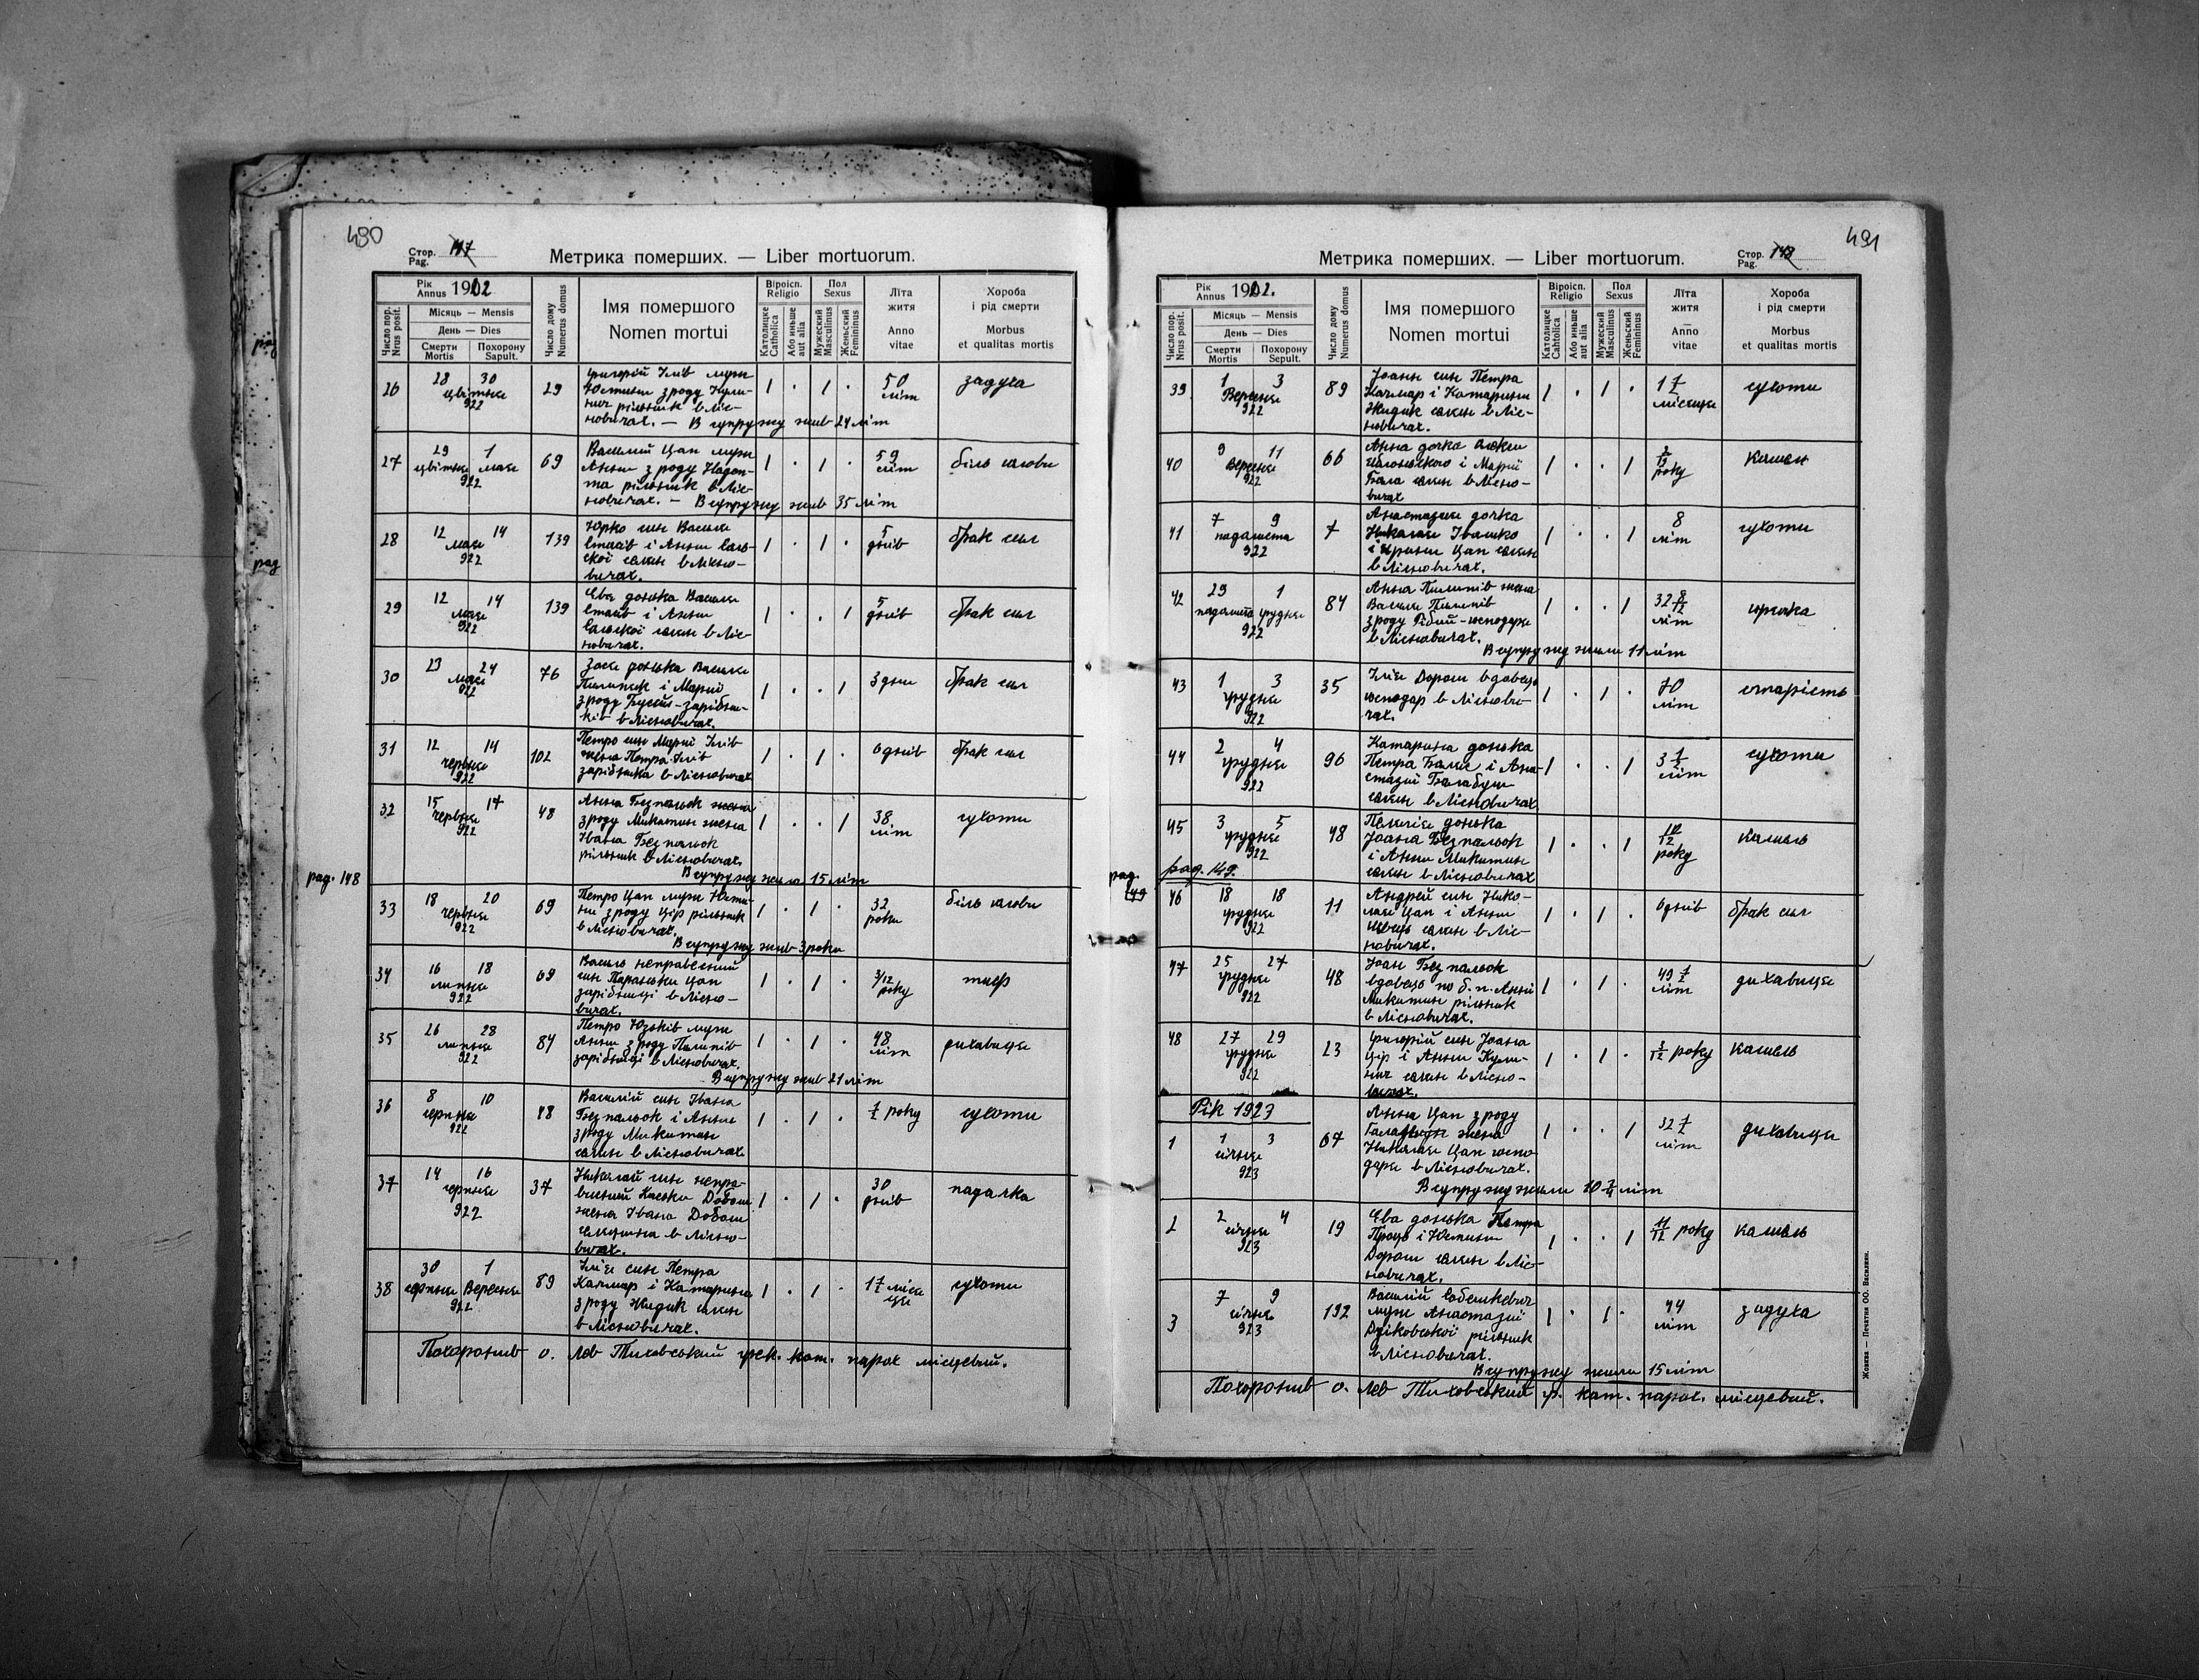 490
Стор. 147
Pag.
Метрика померших. — Liber mortuorum.
Рік 1922
Annus
Місяць — Mensis
День — Dies
Смерти Похорону
Mortis Sapult.
Число пор.
Nrus posit.
Число дому
Numerus domus
Імя помершого
Nomen mortui
Віроісп.
Religio
Католицке
Catholica
Або иньше
aut alia
Пол
Sexus
Мужеский
Masculinus
Женьский
Femininus
Лїта
житя
Anno
vitae
Хороба
і рід смерти
Morbus
et qualitas mortis
26 28 30 цвітня 922 29 Григорій Ілів муж 1 . 1 . 50 літ задуха
Юстини з роду Кули-
нич рільник в Ліс-
новичах. — В супружу жив 24 літ
27 29 цвітня 1 мая 922 69 Василий Цап муж 1 . 1 . 59 літ біль голови
Анни з роду
рільник в Ліс-
новичах. — В супружу жив 35 літ
28 12 14 мая 922 139 Юрко син Василя 1 . 1 . 5 днів брак сил
і Анни
в Лісно-
вичах.
29 12 14 мая 922 139 Ева донька Василя 1 . . 1 5 днів брак сил
і Анни
в Ліс-
новичах.
30 23 24 мая 922 76 донька Василя 1 . . 1 3 дни брак сил
і Марії
з роду зарібни-
ків в Лісновичах.
31 12 14 червня 922 102 Петро син Марії Ілів 1 . 1 . 6 днів брак сил
жена Петра Ілів
зарібника в Лісновичах
32 15 17 червня 922 48 Анна Безпальок жена 1 . . 1 38 літ сухоти
з роду Микитин жена
Івана Безпальок
рільник в Лісновичах.
В супружу жила 15 літ
pag. 148
33 18 20 червня 922 69 Петро Цап муж Юсти- 1 . 1 . 32 роки біль голови
ни з роду Цір рільник
в Лісновичах.
В супружу жив 3 роки
34 16 18 липня 922 69 Василь неправесний 1 . 1 . 3/12 року тиф
син Параньки Цап
зарібниці в Лісно-
вичах.
35 26 28 липня 922 84 Петро Юзьків муж 1 . 1 . 48 літ дихавиця
Анни з роду Пилипів
зарібниці в Лісновичах.
В супружу жив 21 літ
36 8 10 серпня 922 48 Василий син Івана 1 . 1 . 1/2 року сухоти
Безпальок і Анни
з роду Микитин
в Лісновичах
37 14 16 серпня 922 37 Николай син непра- 1 . 1 . 30 днів падачка
весний Каськи Добош
жена Івана Добош
в Лісно-
вичах.
38 30 серпня 1 Вересня 922 89 Ілія син Петра 1 . 1 . 17 міся сухоти
Качмар і Катарини ця
з роду Жидик
в Лісновичах.
Похоронив о. Лев Тиховський грек. кат. парох місцевий.
491
Метрика померших. — Liber mortuorum.
Стор. 148
Pag.
Рік 1922.
Annus
Місяць — Mensis
День — Dies
Смерти Похорону
Mortis Sepult.
Число пор.
Nrus posit.
Число дому
Numerus domus
Імя помершого
Nomen mortui
Віроісп.
Religio
Католицке
Cahtolica
Або иньше
aut alia
Пол
Sexus
Мужеский
Masculinus
Женьский
Femininus
Лїта
житя
Anno
vitae
Хороба
і рід смерти
Morbus
et qualitas mortis
39 1 3 Вересня 922 89 Йоанн син Петра 1 . 1 . 17 місяця сухоти
Качмар і Катарини
Жидик в Ліс-
новичах.
40 9 11 Вересня 922 66 Анна дочка 1 . . 1 року кашель
і Марії
в Лісно-
вичах
41 7 9 падолиста 922 7 Анастазия дочка 1 . . 1 8 літ сухоти
Николая Івашко
і Ирини Цап
в Лісновичах.
42 29 падолиста 1 грудня 922 84 Анна Пилипів жена 1 . . 1 32 8/12 літ
Василя Пилипів
з роду господаря
в Лісновичах.
В супружу жили 11 літ
43 1 3 грудня 922 35 Ілія Дорош вдовець 1 . 1 . 70 літ старість
господар в Ліснови-
чах.
44 2 4 грудня 922 96 Катарина донька 1 . . 1 3 1/2 літ сухоти
Петра і Ана-
стазиї Балабуш
в Лісновичах
45 3 5 грудня 922 48 Пелагія донька 1 . . 1 10/12 року кашель
Йоана Безпальок
і Анни Микитин
в Лісновичах
pag. 149.
pag.
149
46 18 18 грудня 922 11 Андрей син Нико- 1 . 1 . 6 днів брак сил
лая Цап і Анни
Швець в Ліс-
новичах.
47 25 27 грудня 922 48 Йоан Безпальок 1 . 1 . 49 1/2 літ дихавиця
вдовець по б. п. Анні
Микитин рільник
в Лісновичах.
48 27 29 грудня 922 23 Григорій син Йоана 1 . 1 . 3/12 року кашель
Цір і Анни Кули-
нич в Лісно-
вичах.
Рік 1923
1 1 3 січня 923 67 Анна Цап з роду 1 . . 1 32 1/2 літ дихавиця
жена
Николая Цап госпо-
даря в Лісновичах.
В супружу жили літ
2 2 4 січня 923 19 Ева донька Петра 1 . . 1 11/12 року кашель
Проць і Юстини
Дорош в Ліс-
новичах.
3 7 9 січня 923 192 Василий Собешкевич 1 . 1 . 44 літ задуха
муж Анастазиї
рільник
в Лісновичах.
В супружу жили 15 літ
Похоронив о. Лев Тиховський гр. кат. парох. місцевий.
Жовква — Печатня ОО. Василиян.